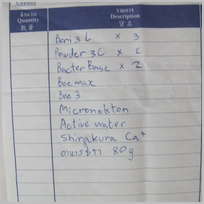 Quantity
數量
Description
Bari 3 L x 3
Powder 3C x
Bacter Base x 2
Bee max
Bee 3
Micronekton
Active water
Shirakura Ca+
อาหารกุ้ง 80g